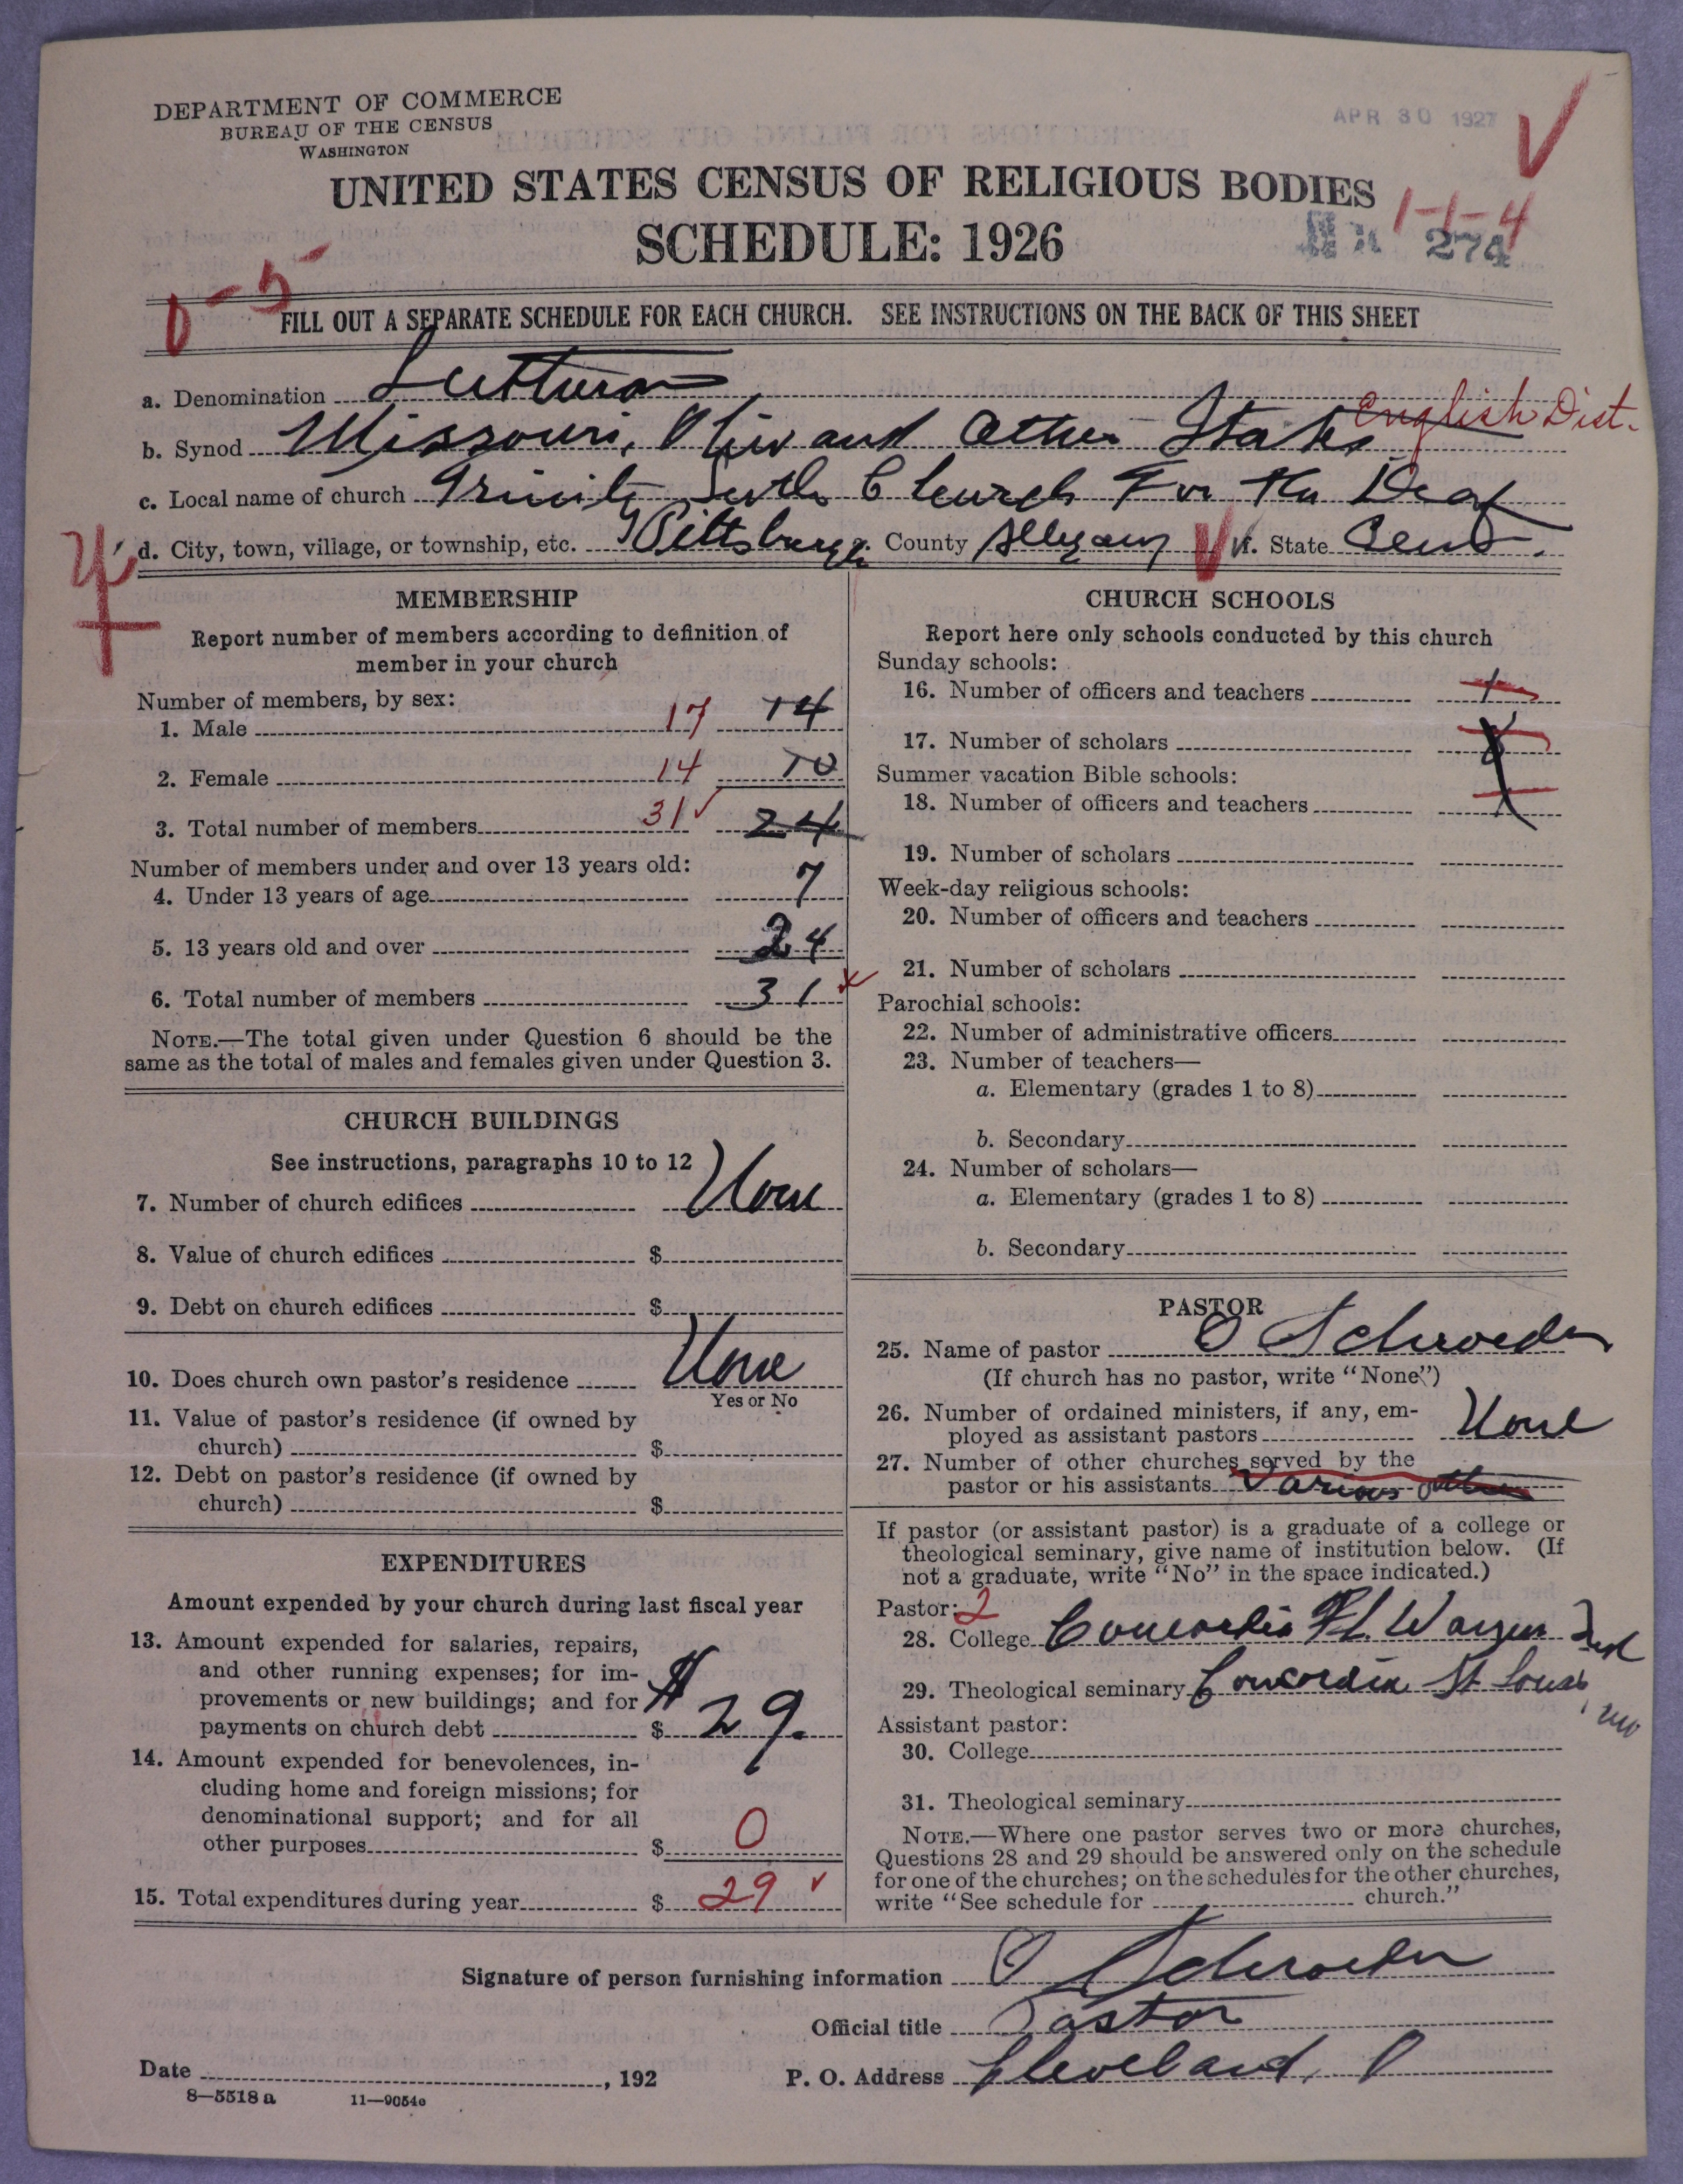 DEPARTMENT OF COMMERCE
BUREAU OF THE CENSUS
WASHINGTON
APR 30 1927
UNITED STATES CENSUS OF RELIGIOUS BODIES
1-1-4
SCHEDULE: 1926
274
0-5
FILL OUT A SEPARATE SCHEDULE FOR EACH CHURCH. SEE INSTRUCTIONS ON THE BACK OF THIS SHEET
a. Denomination Lutheran
English Dist.
b. Synod Missouri, Ohio and Other States
c. Local name of church Trinity Luth Church For the Deaf
d. City, town, village, or township, etc. Pittsburgh County Allegany State Penn.
MEMBERSHIP
Report number of members according to definition of
member in your church
Number of members, by sex:
1. Male 17 14
2. Female 14 10
3. Total number of members 31 ✓ 24
Number of members under and over 13 years old:
4. Under 13 years of age 7
5. 13 years old and over 24
6. Total number of members 31
NOTE.—The total given under Question 6 should be the
same as the total of males and females given under Question 3.
CHURCH BUILDINGS
See instructions, paragraphs 10 to 12
7. Number of church edifices None
8. Value of church edifices $
9. Debt on church edifices $
10. Does church own pastor's residence None
Yes or No
11. Value of pastor's residence (if owned by
church) $
12. Debt on pastor's residence (if owned by
church) $
EXPENDITURES
Amount expended by your church during last fiscal year
13. Amount expended for salaries, repairs,
and other running expenses; for im-
provements or new buildings; and for
payments on church debt $ $29.
14. Amount expended for benevolences, in-
cluding home and foreign missions; for
denominational support; and for all
other purposes $ 0
15. Total expenditures during year $ 29 ✓
CHURCH SCHOOLS
Report here only schools conducted by this church
Sunday schools:
16. Number of officers and teachers 1
17. Number of scholars 8
Summer vacation Bible schools:
18. Number of officers and teachers
19. Number of scholars
Week-day religious schools:
20. Number of officers and teachers
21. Number of scholars
Parochial schools:
22. Number of administrative officers
23. Number of teachers—
a. Elementary (grades 1 to 8)
b. Secondary
24. Number of scholars—
a. Elementary (grades 1 to 8)
b. Secondary
PASTOR
25. Name of pastor O Schroeder
(If church has no pastor, write "None")
26. Number of ordained ministers, if any, em-
ployed as assistant pastors None
27. Number of other churches served by the
pastor or his assistants Various others
If pastor (or assistant pastor) is a graduate of a college or
theological seminary, give name of institution below. (If
not a graduate, write "No" in the space indicated.)
Pastor: 2
28. College Concordia Ft. Wayne Ind
29. Theological seminary Concordia St Louis, Mo
Assistant pastor:
30. College
31. Theological seminary
NOTE.—Where one pastor serves two or more churches,
Questions 28 and 29 should be answered only on the schedule
for one of the churches; on the schedules for the other churches,
write "See schedule for church."
Signature of person furnishing information O Schroeder
Official title Pastor
Date , 192
P. O. Address Cleveland, O
8—5518 a 11—9054